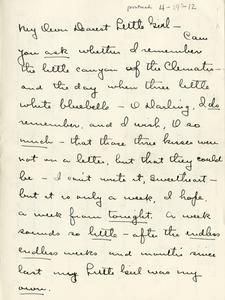 postmark 4-19-12
My Own Dearest Little Girl -
Can
you ask whether I remember
the little canyon of the Clematis -
and the day when three little
white bluebells - O Darling, I do
remember, and I wish, O so
much - that those three kisses were
not on a letter, but that they could
be - I can't write it, Sweetheart -
but it is only a week, I hope,
a week from tonight. A week
sounds so little - after the endless
endless weeks and months since
last my Little Girl was my
own.